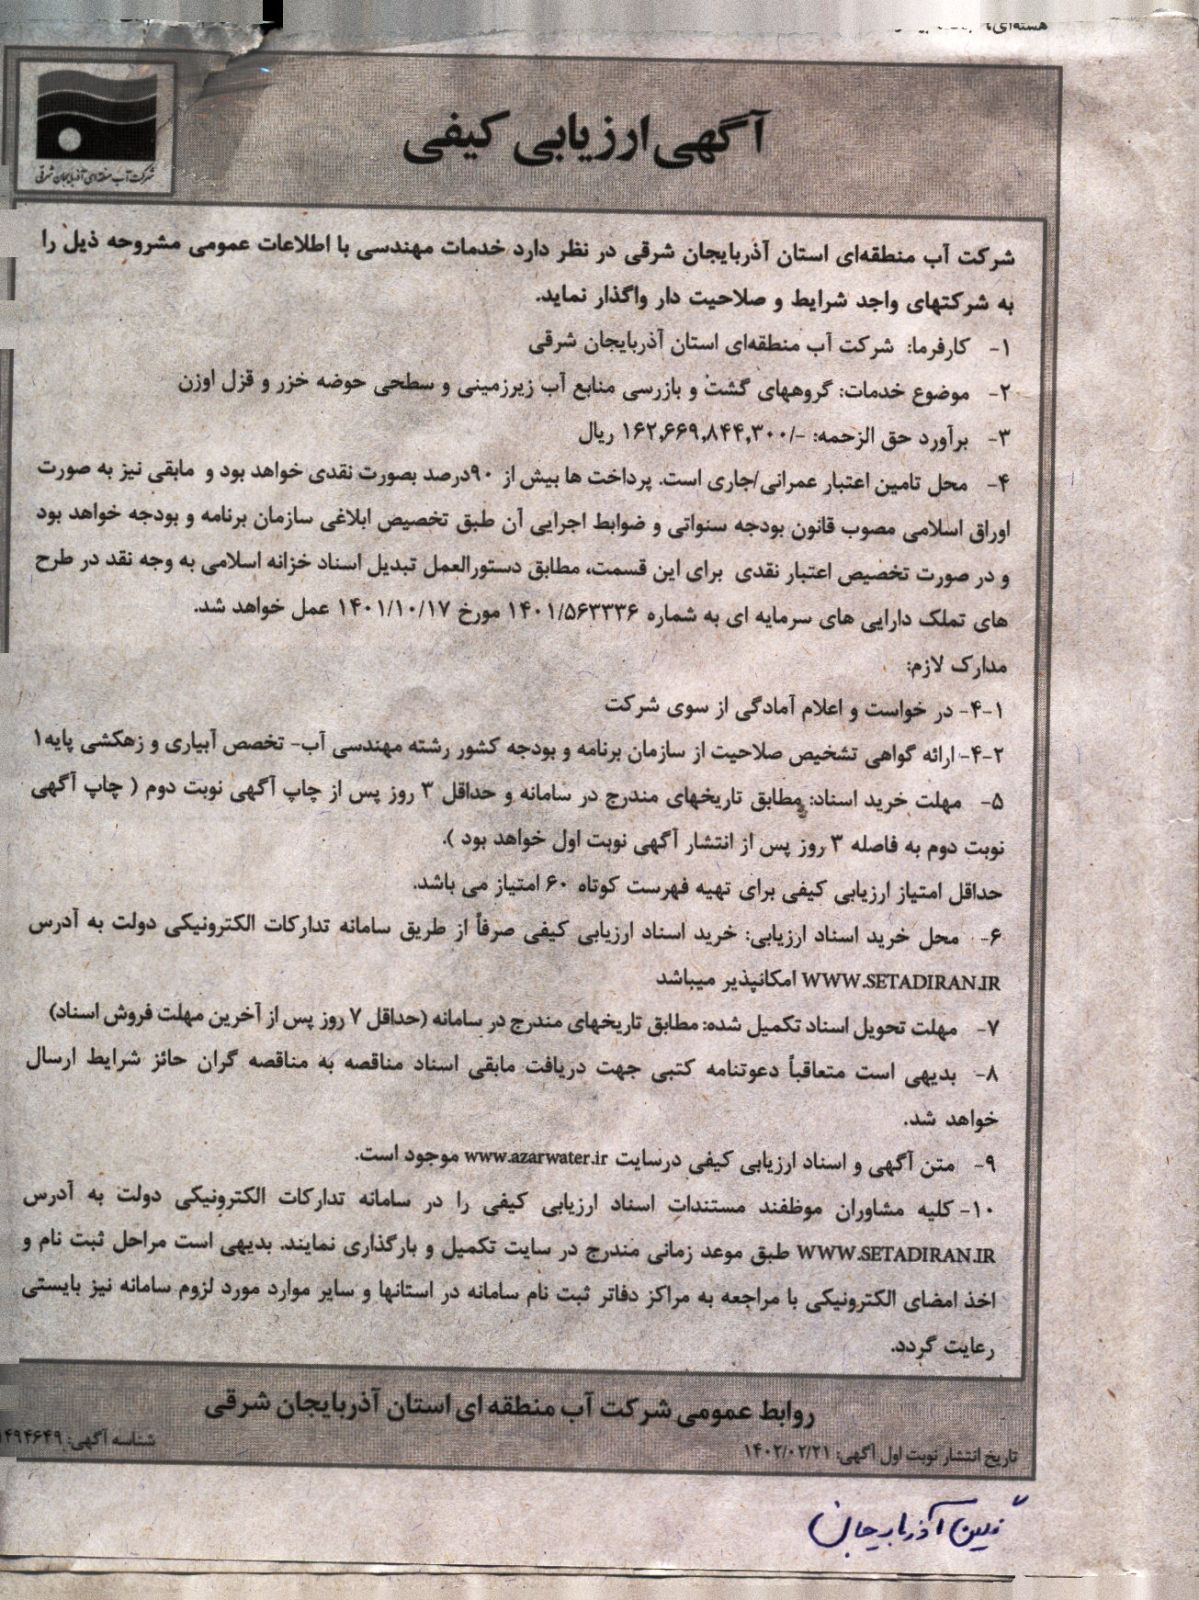 آگهی ارزیابی کیفی
شرکت آب منطقه‌ای آذربایجان شرقی
شرکت آب منطقه‌ای استان آذربایجان شرقی در نظر دارد خدمات مهندسی با اطلاعات عمومی مشروحه ذیل را
به شرکتهای واجد شرایط و صلاحیت دار واگذار نماید.
۱- کارفرما: شرکت آب منطقه‌ای استان آذربایجان شرقی
۲- موضوع خدمات: گروههای گشت و بازرسی منابع آب زیرزمینی و سطحی حوضه خزر و قزل اوزن
۳- برآورد حق الزحمه: -/۱۶۲,۶۶۹,۸۴۴,۳۰۰ ریال
۴- محل تامین اعتبار عمرانی/جاری است. پرداخت ها بیش از ۹۰درصد بصورت نقدی خواهد بود و مابقی نیز به صورت
اوراق اسلامی مصوب قانون بودجه سنواتی و ضوابط اجرایی آن طبق تخصیص ابلاغی سازمان برنامه و بودجه خواهد بود
و در صورت تخصیص اعتبار نقدی برای این قسمت، مطابق دستورالعمل تبدیل اسناد خزانه اسلامی به وجه نقد در طرح
های تملک دارایی های سرمایه ای به شماره ۱۴۰۱/۵۶۳۳۳۶ مورخ ۱۴۰۱/۱۰/۱۷ عمل خواهد شد.
مدارک لازم:
۴-۱- در خواست و اعلام آمادگی از سوی شرکت
۴-۲- ارائه گواهی تشخیص صلاحیت از سازمان برنامه و بودجه کشور رشته مهندسی آب- تخصص آبیاری و زهکشی پایه۱
۵- مهلت خرید اسناد: مطابق تاریخهای مندرج در سامانه و حداقل ۳ روز پس از چاپ آگهی نوبت دوم ( چاپ آگهی
نوبت دوم به فاصله ۳ روز پس از انتشار آگهی نوبت اول خواهد بود ).
حداقل امتیاز ارزیابی کیفی برای تهیه فهرست کوتاه ۶۰ امتیاز می باشد.
۶- محل خرید اسناد ارزیابی: خرید اسناد ارزیابی کیفی صرفاً از طریق سامانه تدارکات الکترونیکی دولت به آدرس
WWW.SETADIRAN.IR امکانپذیر میباشد
۷- مهلت تحویل اسناد تکمیل شده: مطابق تاریخهای مندرج در سامانه (حداقل ۷ روز پس از آخرین مهلت فروش اسناد)
۸- بدیهی است متعاقباً دعوتنامه کتبی جهت دریافت مابقی اسناد مناقصه به مناقصه گران حائز شرایط ارسال
خواهد شد.
۹- متن آگهی و اسناد ارزیابی کیفی درسایت www.azarwater.ir موجود است.
۱۰- کلیه مشاوران موظفند مستندات اسناد ارزیابی کیفی را در سامانه تدارکات الکترونیکی دولت به آدرس
WWW.SETADIRAN.IR طبق موعد زمانی مندرج در سایت تکمیل و بارگذاری نمایند. بدیهی است مراحل ثبت نام و
اخذ امضای الکترونیکی با مراجعه به مراکز دفاتر ثبت نام سامانه در استانها و سایر موارد مورد لزوم سامانه نیز بایستی
رعایت گردد.
روابط عمومی شرکت آب منطقه ای استان آذربایجان شرقی
تاریخ انتشار نوبت اول آگهی: ۱۴۰۲/۰۲/۲۱
شناسه آگهی: ۱۴۹۴۶۴۹
آذربایجان